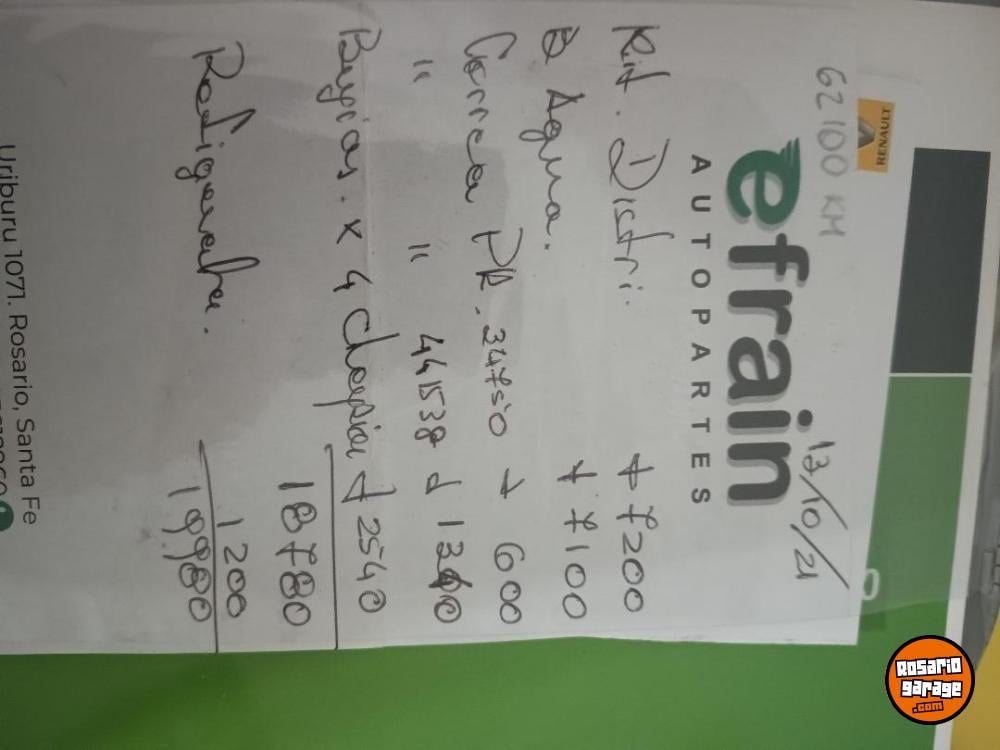 RENAULT
62100 KM
13/10/21
efrain
AUTOPARTES
Kit. Distri. 7200
B. Agua. 7100
Correa PK. 34750 600
" " 441538 1340
Bujias. x 4 2540
18780
1200
19980
Uriburu 1071. Rosario, Santa Fe
Rosario
garage
.com